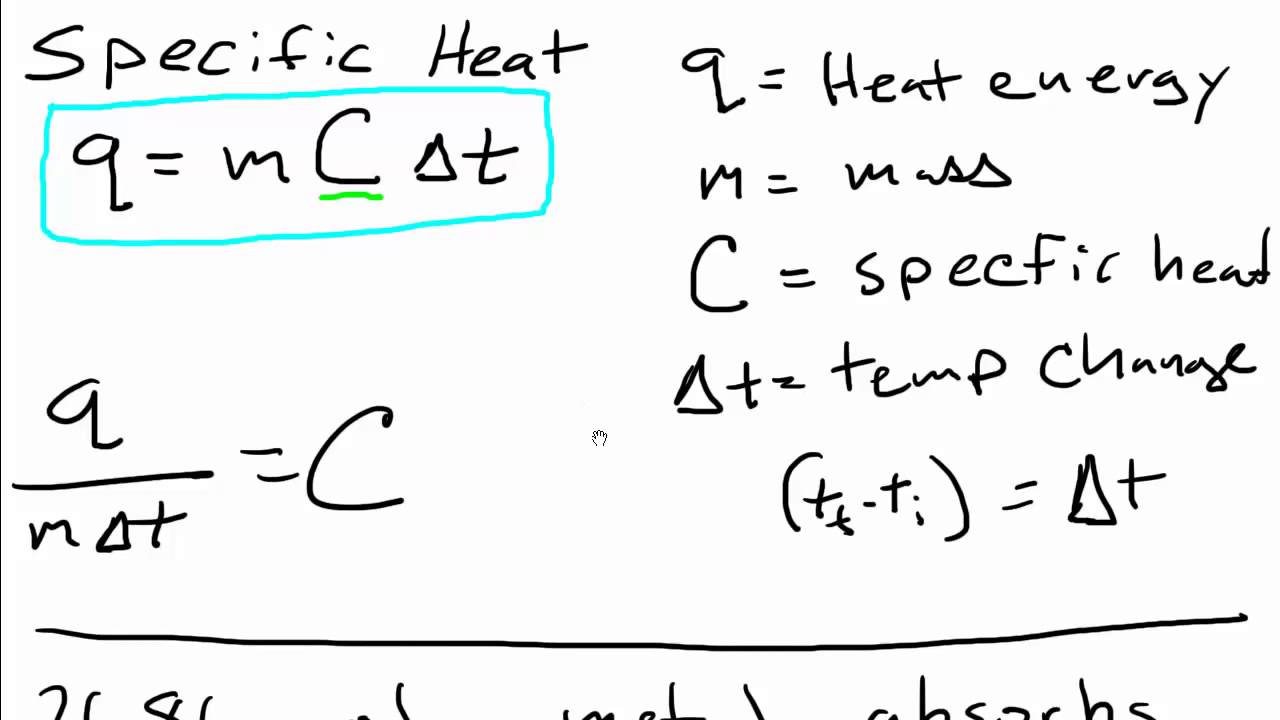 Specific Heat
q = m C Δt
q = Heat energy
m = mass
C = specfic heat
Δt = temp change
(tf - ti) = Δt
q
m Δt
= C
absorbs